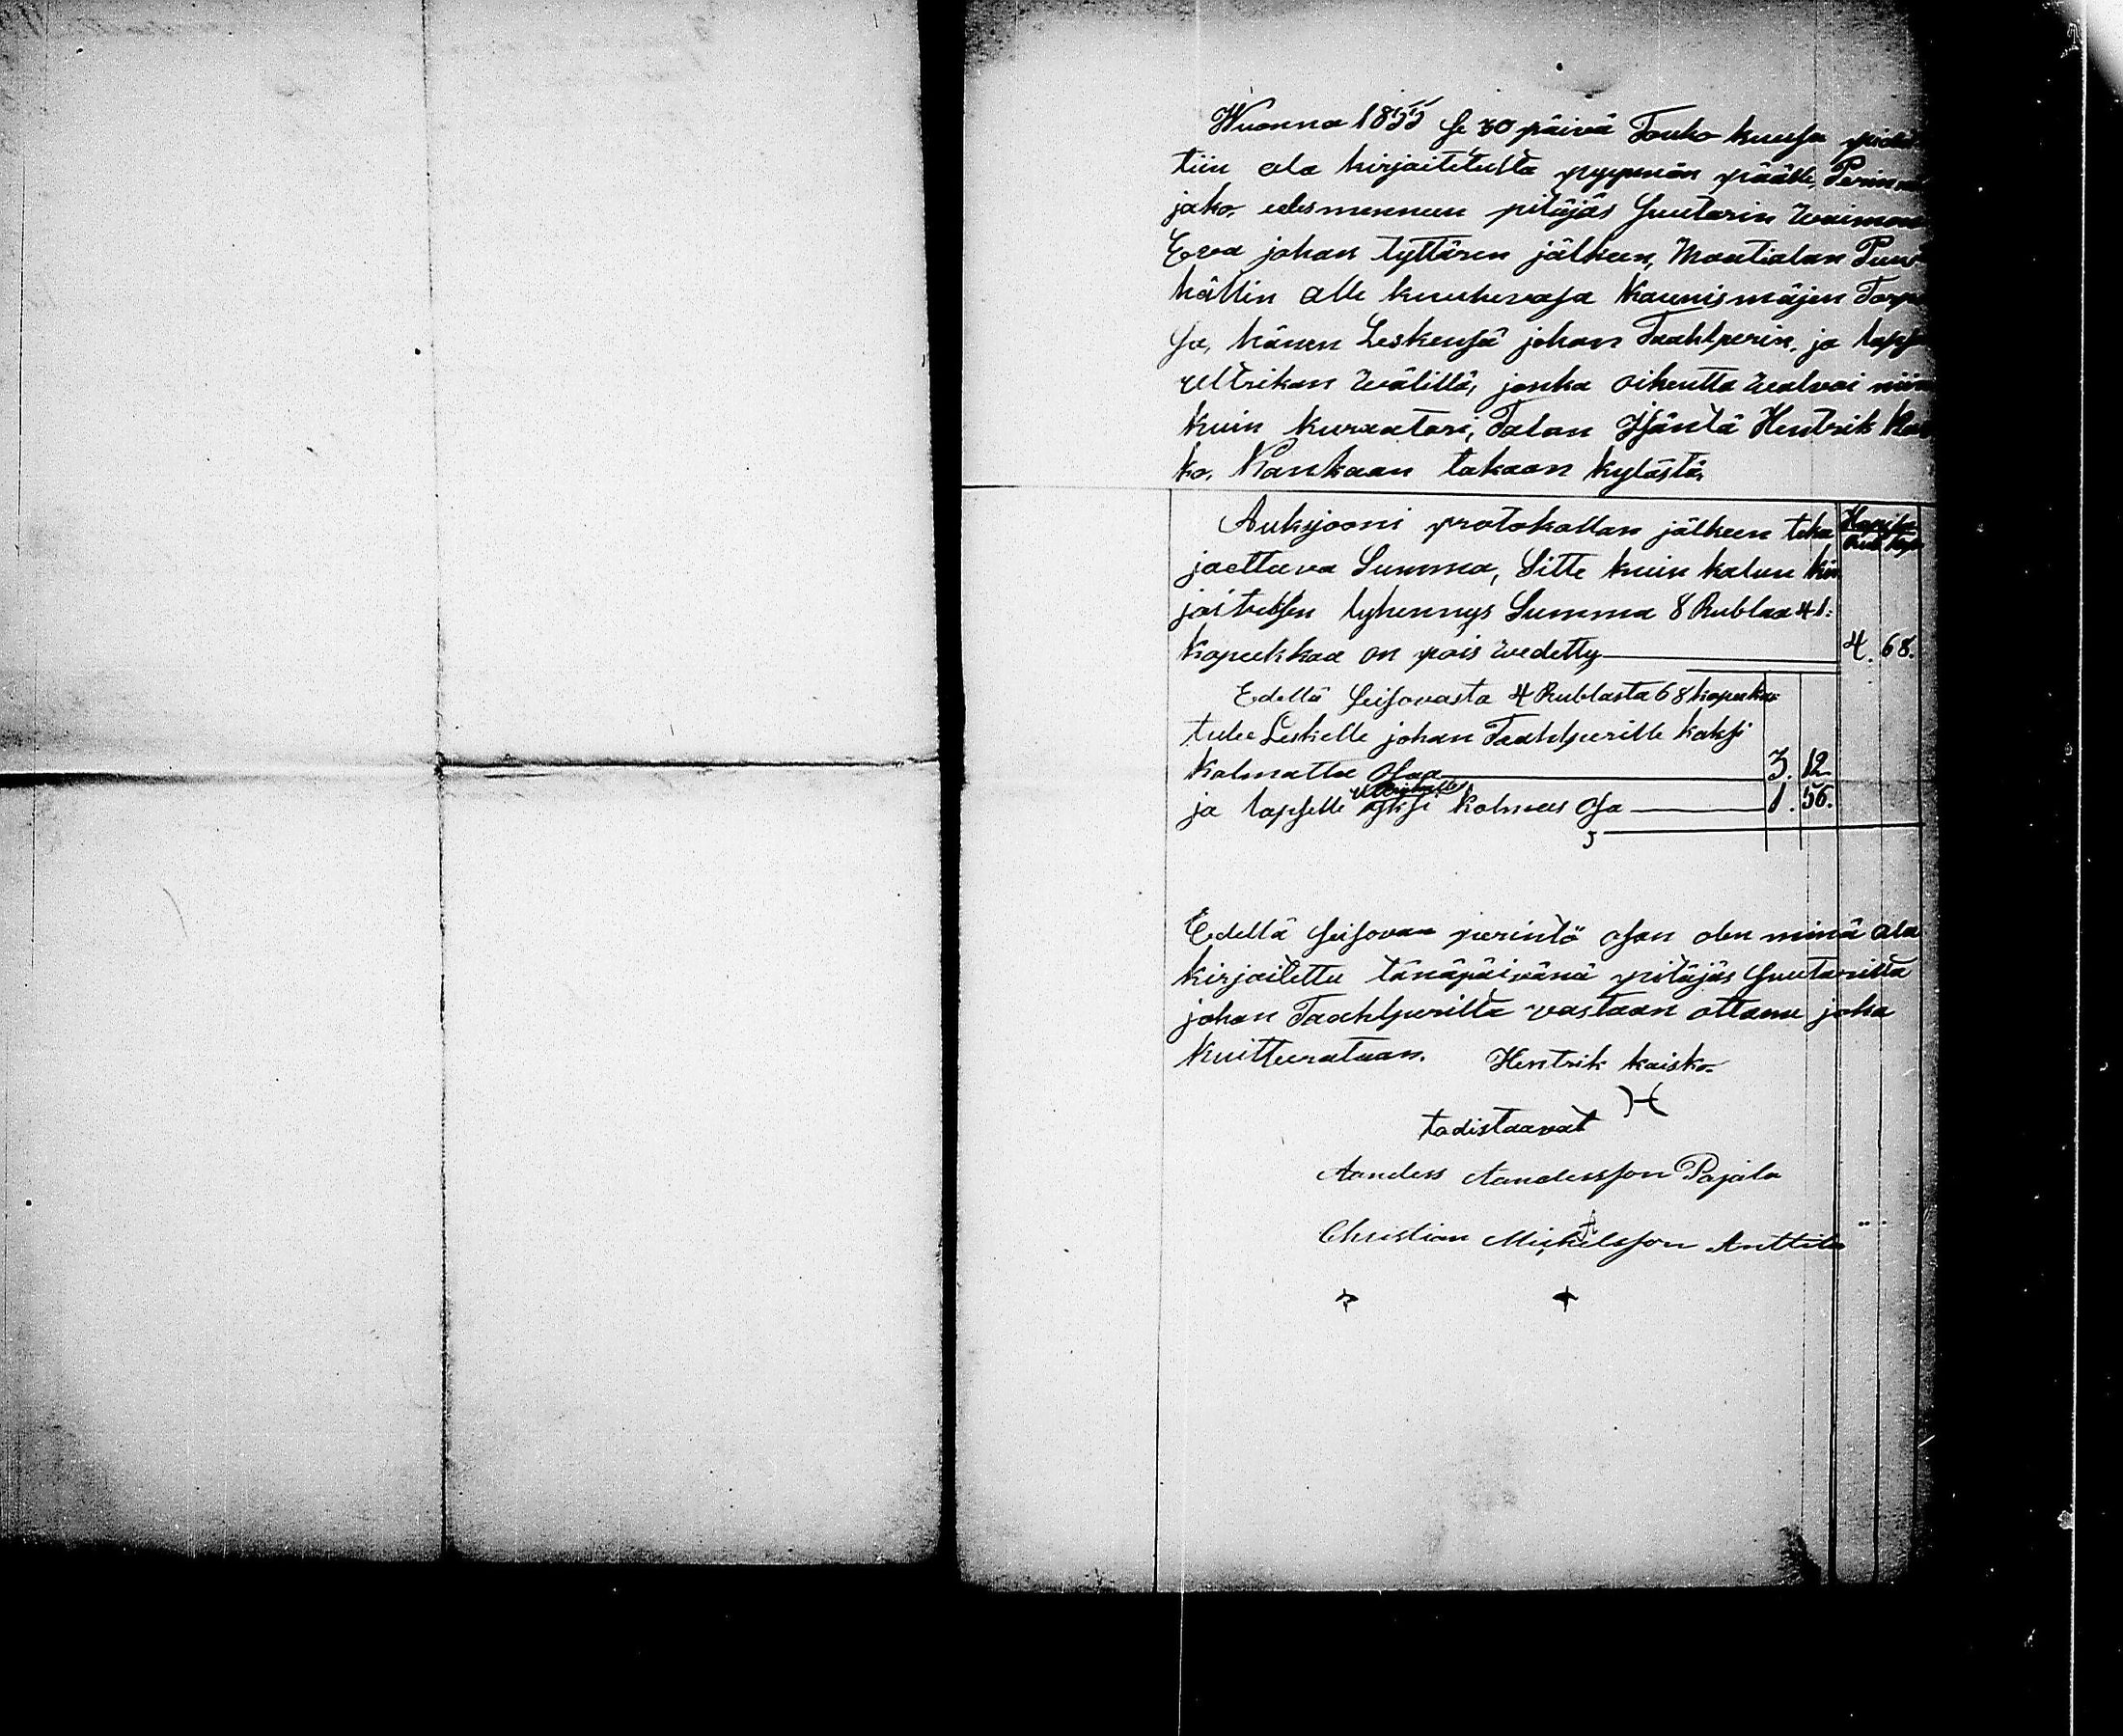 Wuonna 1855 se 30 päivä Touko kuusa pidet
tiin ala kirjoitetulta pyynnön päälle, Perinnön
jako, edesmenneen pitäjäs Suutarin Waimon
Eeva johan tyttären jälkeen, Mautialan Puus
hällin alle kuuluvasa Kaunismäjen Torpa
sa, hänen Leskensä johan Taahlperin, ja lapsen
Ulrikan wälillä, jonka oikeutta walvoi niin
kuin kuraatori, Talon Isäntä Hentrik Kais
ko, Kankaan takaan kylästä,
Auksjooni protokollan jälkeen teke
Hopiasa
Rubl. Kop.
jaettava Summa, Sitte kuin kalun kir
joituksen lyhennys Summa 8 Rublaa 41.
kopeekkaa on pois wedetty 4. 68.
Edellä seisovasta 4 Rublasta 68 kopeekas
tulee Leskelle johan Taahlperille kaksi
kolmatta osaa 3. 12
Ulrikalle
ja lapselle yksi kolmas osa 1. 56.
Edellä seisovan perintö osan olen minä ala
kirjoitettu tänäpäivänä pitäjäs Suutarilta
johan Taahlperilta vastaan ottanu joka
kuitterataan. Hentrik kaisko.
todistaavat
Aanders Aandersson Pajala
Christian Mickelsson Anttila